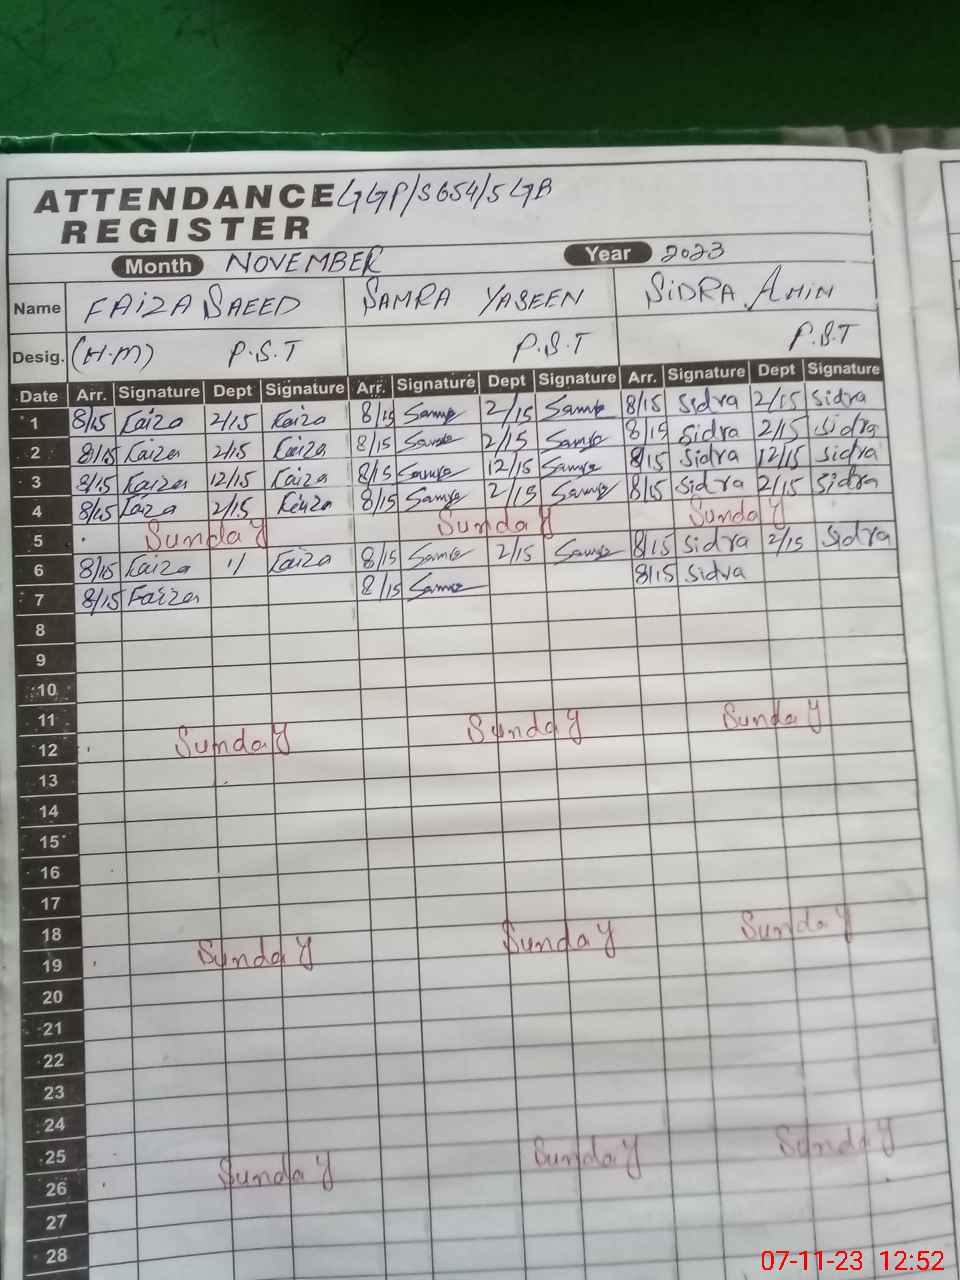 ATTENDANCE GGP/S 654/5 GB
REGISTER
Month NOVEMBER Year 2023
Name FAIZA SAEED SAMRA YASEEN SIDRA AMIN
Desig. (H.M) P.S.T P.S.T P.S.T
Date Arr. Signature Dept Signature Arr. Signature Dept Signature Arr. Signature Dept Signature
1 8/15 Faiza 2/15 Faiza 8/15 Samra 2/15 Samra 8/15 Sidra 2/15 Sidra
2 8/15 Faiza 2/15 Faiza 8/15 Samra 2/15 Samra 8/15 Sidra 2/15 Sidra
3 8/15 Faiza 12/15 Faiza 8/15 Samra 12/15 Samra 8/15 Sidra 12/15 Sidra
4 8/15 Faiza 2/15 Faiza 8/15 Samra 2/15 Samra 8/15 Sidra 2/15 Sidra
5 Sunday Sunday Sunday
6 8/15 Faiza 1/ Faiza 8/15 Samra 2/15 Samra 8/15 Sidra 2/15 Sidra
7 8/15 Faiza 8/15 Samra 8/15 Sidra
8
9
10
11
12 Sunday Sunday Sunday
13
14
15
16
17
18
19 Sunday Sunday Sunday
20
21
22
23
24
25
26 Sunday Sunday Sunday
27
28
07-11-23 12:52